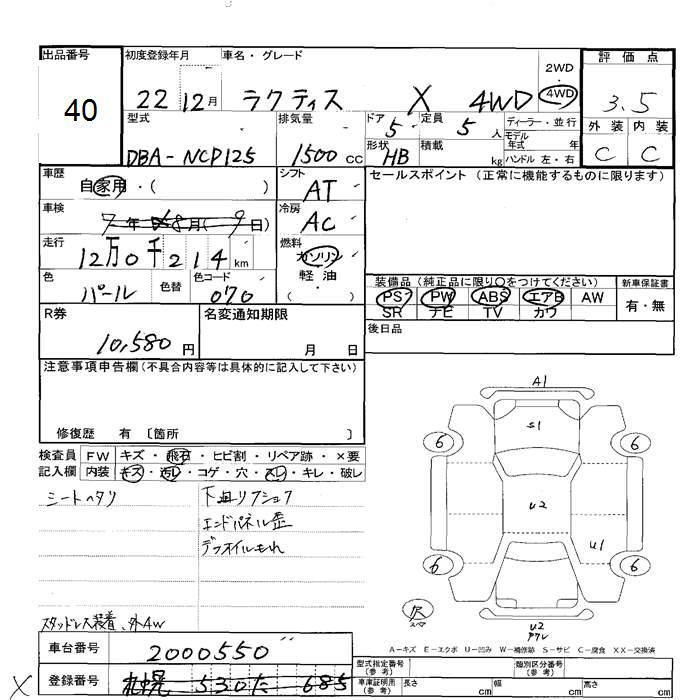 出品番号
40
初度登録年月
22 12月
車名・グレード
ラクティス X 4WD
2WD
・
4WD
評価点
3.5
外装 内装
C C
型式
DBA-NCP125
排気量
1500 CC
ドア 5
定員 5 人
ディーラー・並行
モデル
年式 年
形状 HB
積載 kg
ハンドル 左・右
車歴
自家用・( )
シフト
AT
セールスポイント (正常に機能するものに限ります)
車検
7年 8月(9日)
冷房
AC
走行
12万0千214km
燃料
ガソリン
軽油
( )
色
パール
色替
色コード
070
装備品(純正品に限り○をつけてください)
PS PW ABS エアB AW
SR ナビ TV カワ
新車保証書
有・無
R券
10,580円
名変通知期限
月 日
後日品
注意事項申告欄(不具合内容等は具体的に記入して下さい)
修復歴 有 〔箇所 〕
検査員
記入欄
FW キズ・飛石・ヒビ割・リペア跡・×要
内装 キズ・汚レ・コゲ・穴・スレ・キレ・破レ
シートヘタリ
下廻リフショク
エンドパネル歪
デフオイルもれ
スタッドレス装着、外4W
A1
S1
6 6
U2
U1
6 6
尺
スペア
U2
アワレ
A-キズ E-エクボ U-凹み W-補修跡 S-サビ C-腐食 XX-交換済
車台番号
2000550
X
登録番号
札幌 530 た 685
型式指定番号
(参考)
類別区分番号
(参考)
車庫証明用
(参考)
長さ cm
幅 cm
高さ cm